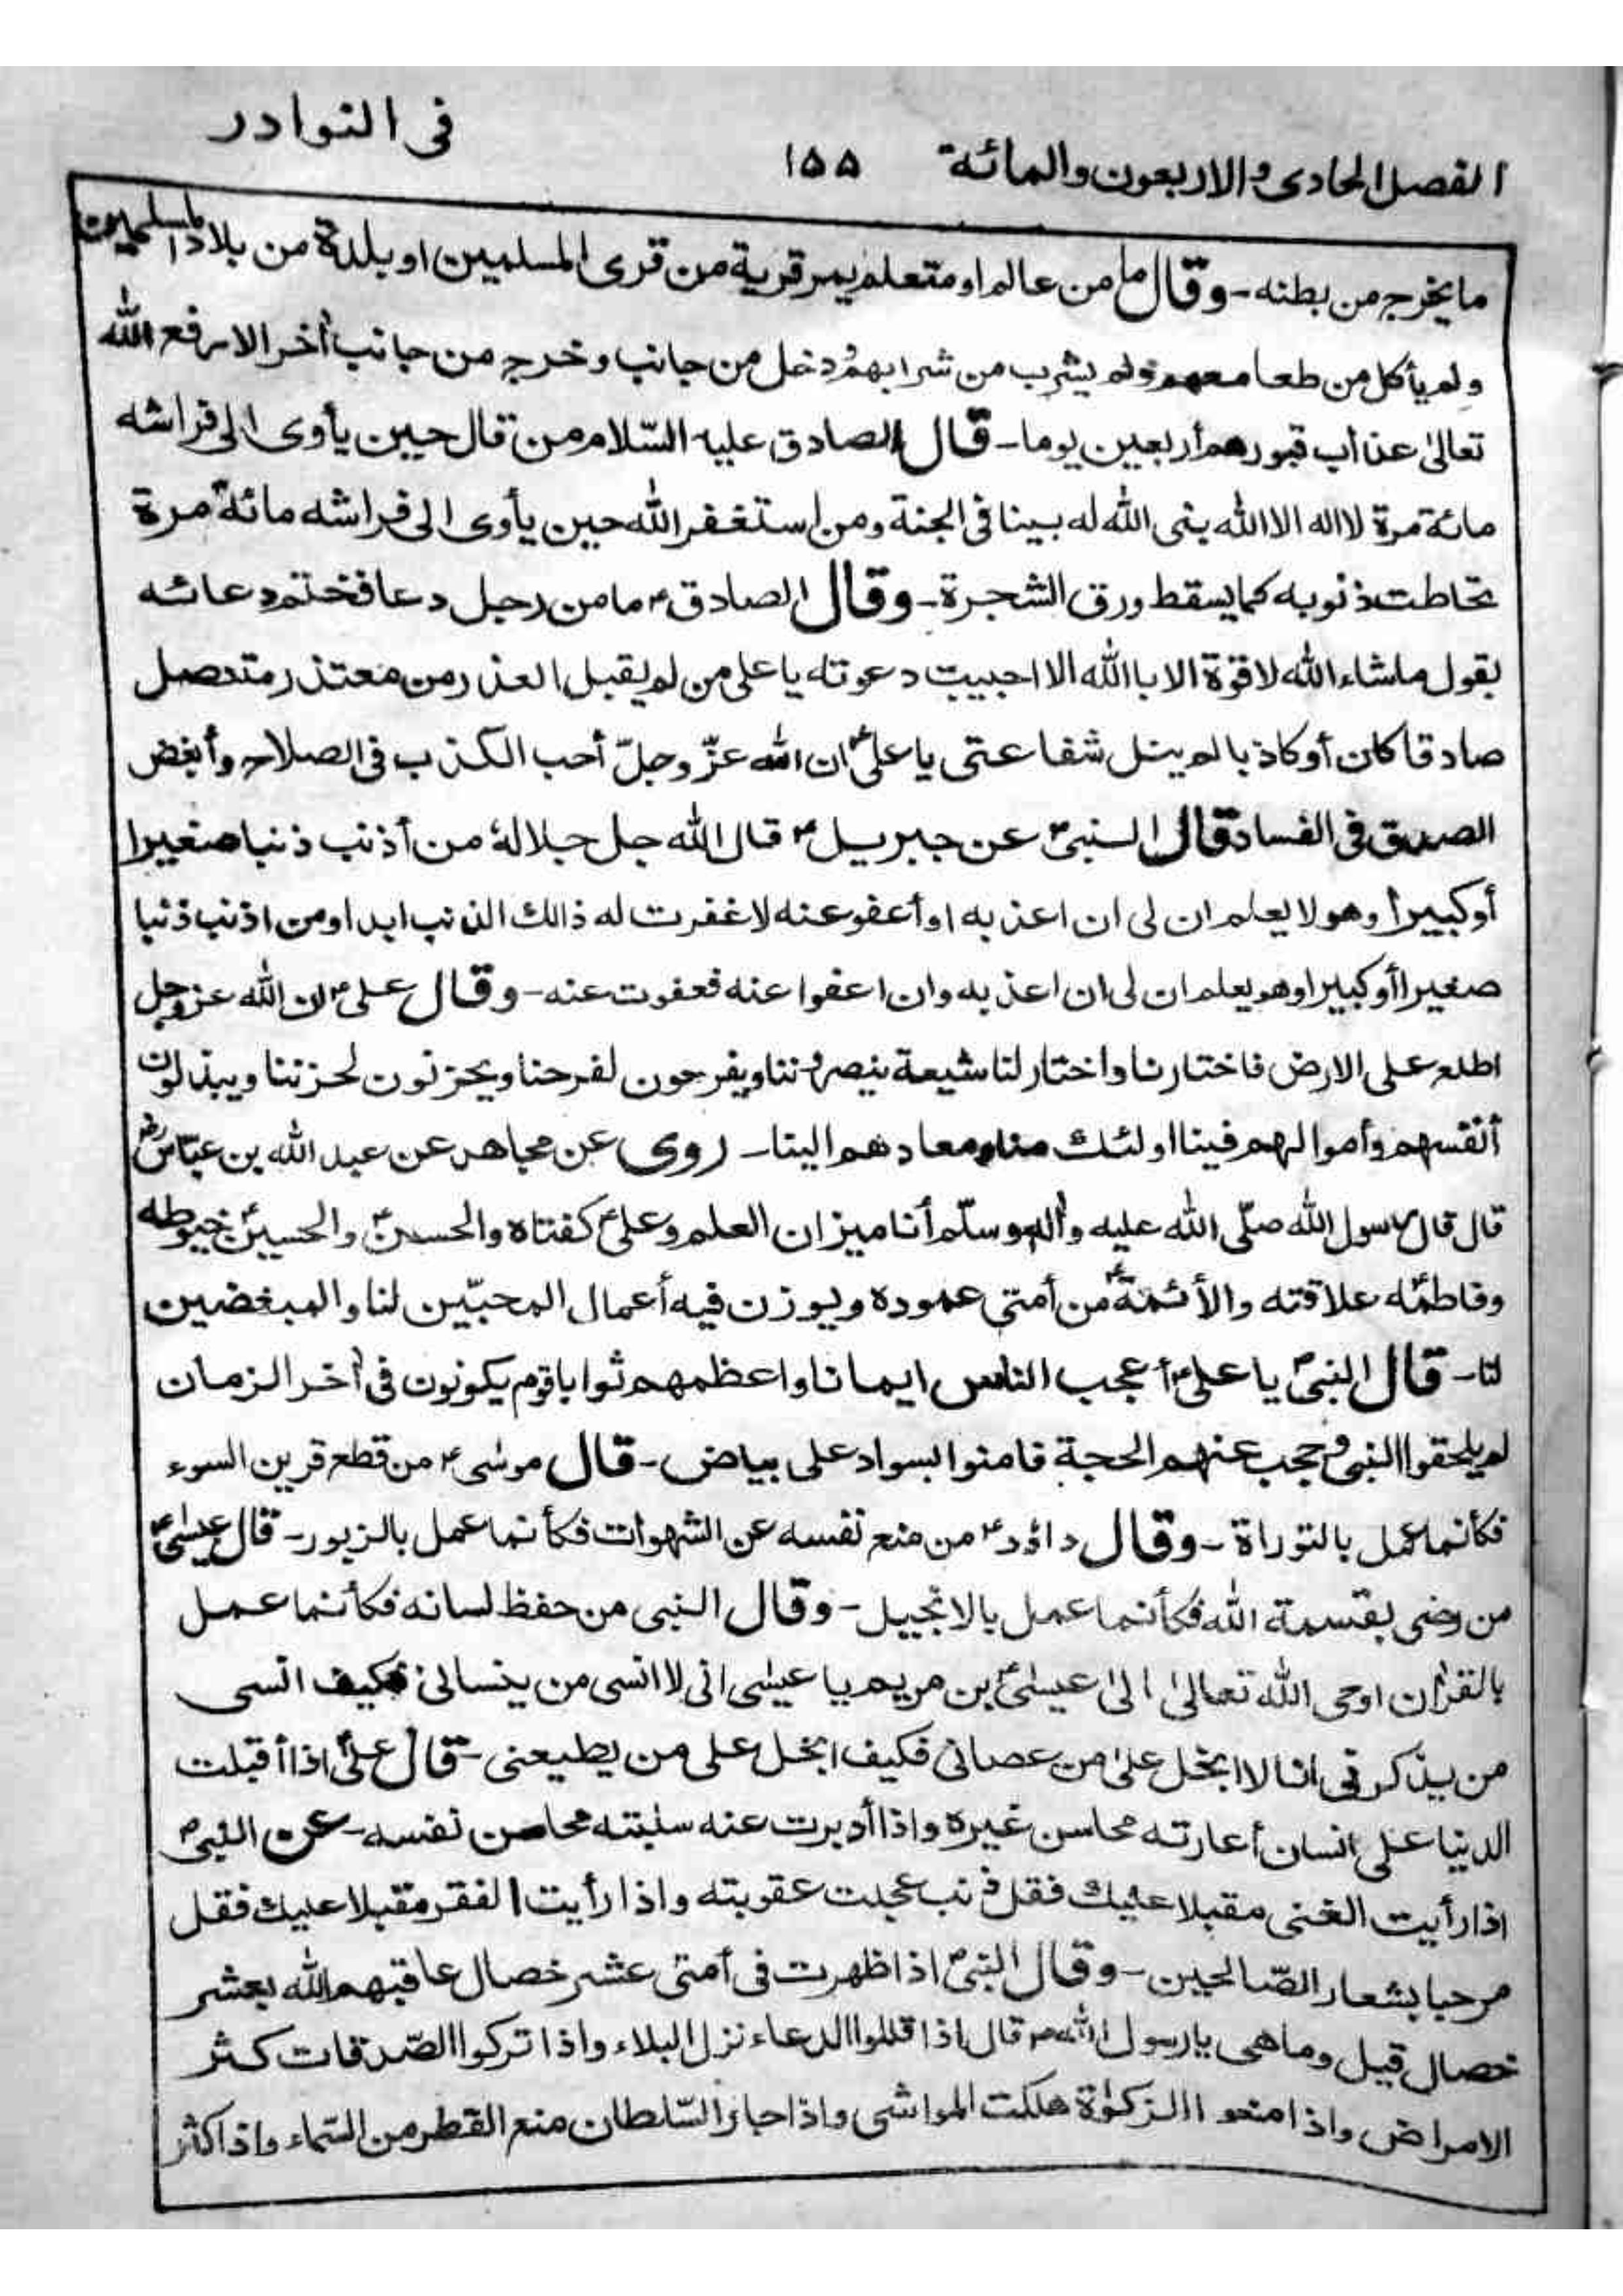 فى النوادر
الفصل الحادى والاربعون والمائة ١٥٥
ما يخرج من بطنه - وقال ما من عالم او متعلم يمر قرية من قرى المسلمين او بلدة من بلاد المسلمين
ولم يأكل من طعامهم ولم يشرب من شرابهم دخل من جانب وخرج من جانب أخر الا رفع الله
تعالىٰ عذاب قبورهم أربعين يوما - قال الصادق عليه السّلام من قال حين يأوى الى فراشه
مائة مرة لا اله الا الله بنى الله له بيتا فى الجنة ومن استغفر الله حين يأوى الى فراشه مائة مرة
تحاطت ذنوبه كما يسقط ورق الشجرة - وقال الصادق ؑ ما من رجل دعا فختم دعائه
بقول ماشاء الله لا قوة الا باالله الا اجيبت دعوته يا على من لم يقبل العذر من معتذر متنصل
صادقا كان أو كاذبا لم ينل شفاعتى يا على ؑ ان الله عزّ وجلّ أحب الكذب فى الصلاح وأبغض
الصدق فى الفساد قال النبى ؐ عن جبريل ؑ قال الله جل جلاله من أذنب ذنبا صغيرا
أو كبيرا وهو لا يعلم ان لى ان اعذبه او أعفو عنه لا غفرت له ذالك الذنب ابدا ومن اذنب ذنبا
صغيرا أو كبيرا وهو يعلم ان لى ان اعذبه وان اعفوا عنه فعفوت عنه - وقال على ؑ ان الله عز وجل
اطلع على الارض فاختارنا واختار لنا شيعة ينصروننا ويفرحون لفرحنا ويحزنون لحزننا ويبذلون
أنفسهم وأموالهم فينا اولئك منا ومعادهم الينا - روى عن مجاهد عن عبد الله بن عبّاس ؓ
قال قال رسول الله صلّى الله عليه وأله وسلّم أنا ميزان العلم وعلى ؑ كفتاه والحسن ؑ والحسين ؑ خيوطه
وفاطمة علاقته والأئمة ؑ من أمتى عموده ويوزن فيه أعمال المحبّين لنا والمبغضين
لنا - قال النبى ؐ يا على ؑ أعجب الناس ايمانا واعظمهم ثوابا قوم يكونون فى أخر الزمان
لم يلحقوا النبى وحجب عنهم الحجة فامنوا بسواد على بياض - قال موسٰى ؑ من قطع قرين السوء
فكأنما عمل بالتوراة - وقال داؤد ؑ من منع نفسه عن الشهوات فكأنما عمل بالزبور - قال عيسٰى ؑ
من رضى بقسمة الله فكأنما عمل بالانجيل - وقال النبى من حفظ لسانه فكأنما عمل
بالقرأن اوحى الله تعالىٰ الىٰ عيسٰى ؑ بن مريم يا عيسٰى انى لا انسى من ينسانى فكيف انسى
من يذكرنى انا لا ابخل علىٰ من عصانى فكيف ابخل على من يطيعنى - قال على ؑ اذا أقبلت
الدنيا على انسان أعارته محاسن غيره واذا أدبرت عنه سلبته محاسن نفسه - عن النبى ؐ
اذا رأيت الغنى مقبلا عليك فقل ذنب عجلت عقوبته واذا رأيت الفقر مقبلا عليك فقل
مرحبا بشعار الصّالحين - وقال النبى ؐ اذا ظهرت فى أمتى عشر خصال عاقبهم الله بعشر
خصال قيل وما هى يا رسول الله ؐ قال اذا قللوا الدعاء نزل البلاء واذا تركوا الصّدقات كثر
الامراض واذا منعوا الزكوٰة هلكت المواشى واذا جار السّلطان منع القطر من السّماء واذا كثر